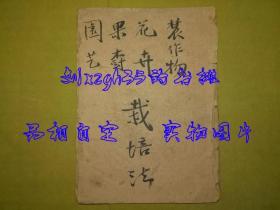 作物
花卉
果
園艺
栽培法
刘xzgh35的书摊
品相自定 实物图片